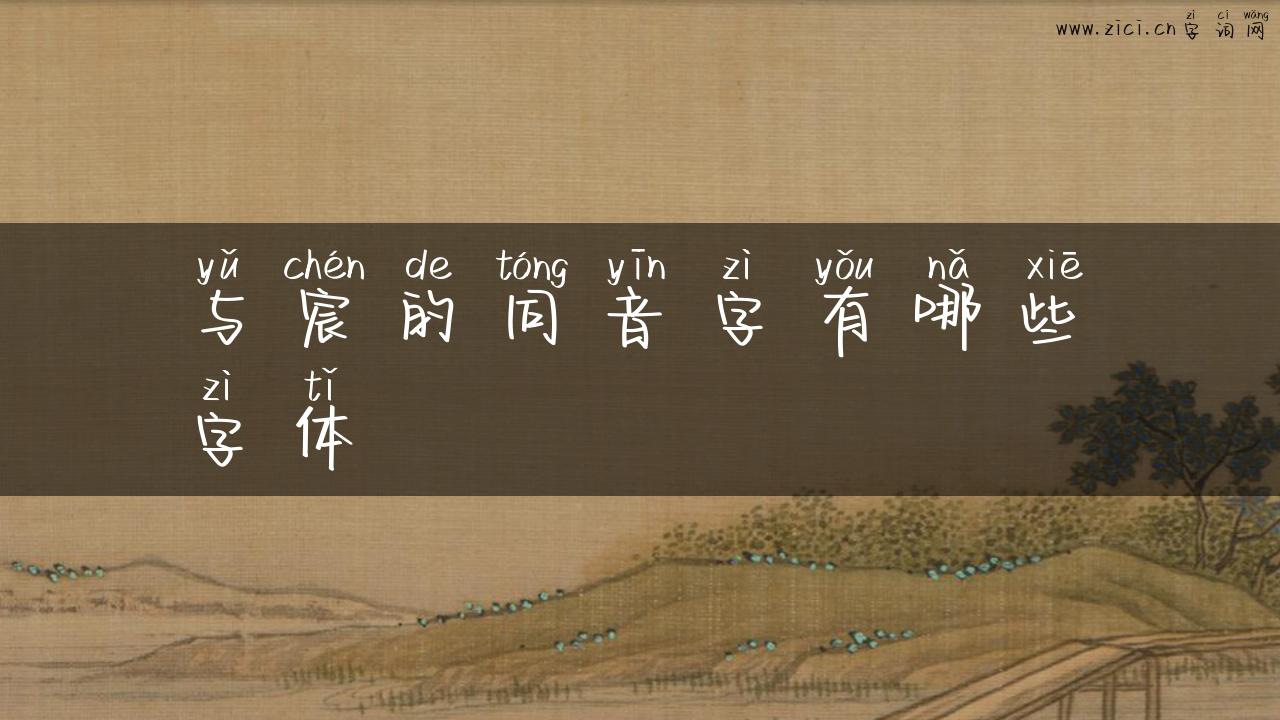 zì cí wǎng
www.zici.cn字词网
yǔ chén de tóng yīn zì yǒu nǎ xiē
与宸的同音字有哪些
zì tǐ
字体